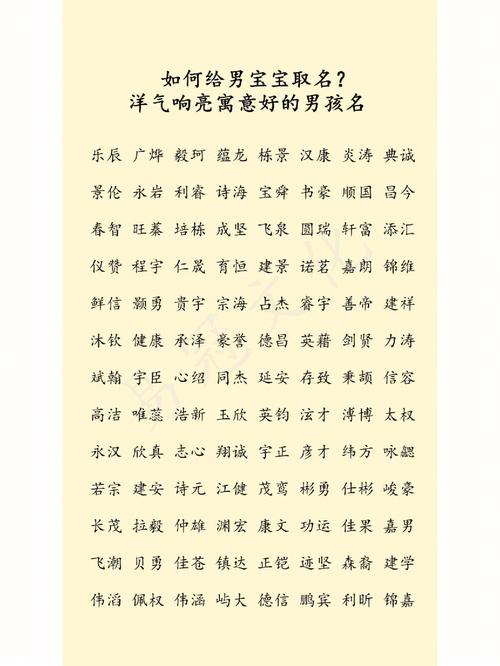 如何给男宝宝取名？
洋气响亮寓意好的男孩名
乐辰 广烨 毅珂 蕴龙 栋景 汉康 炎涛 典诚
景伦 永岩 利睿 诗海 宝舜 书豪 顺国 昌今
春智 旺蓁 培栋 成坚 飞泉 圆瑞 轩富 添汇
仪赞 程宇 仁晟 育恒 建景 诺茗 嘉朗 锦维
鲜信 颢勇 贵宇 宗海 占杰 睿宇 善帝 建祥
沐钦 健康 承泽 豪誉 德昌 英藉 剑贤 力涛
斌翰 宇臣 心绍 同杰 延安 存致 秉颉 信容
高洁 唯蕊 浩新 玉欣 英钧 泫才 溥博 太权
永汉 欣真 志心 翔诚 宇正 彦才 纬方 咏勰
若宗 建安 诗元 江健 茂鸾 彬勇 仕彬 峻豪
长茂 拉毅 仲雄 渊宏 康文 功运 佳果 嘉男
飞潮 贝勇 佳苍 镇达 正铠 迹坚 森裔 建学
伟滔 佩权 伟涵 屿大 德信 鹏宾 利昕 锦嘉